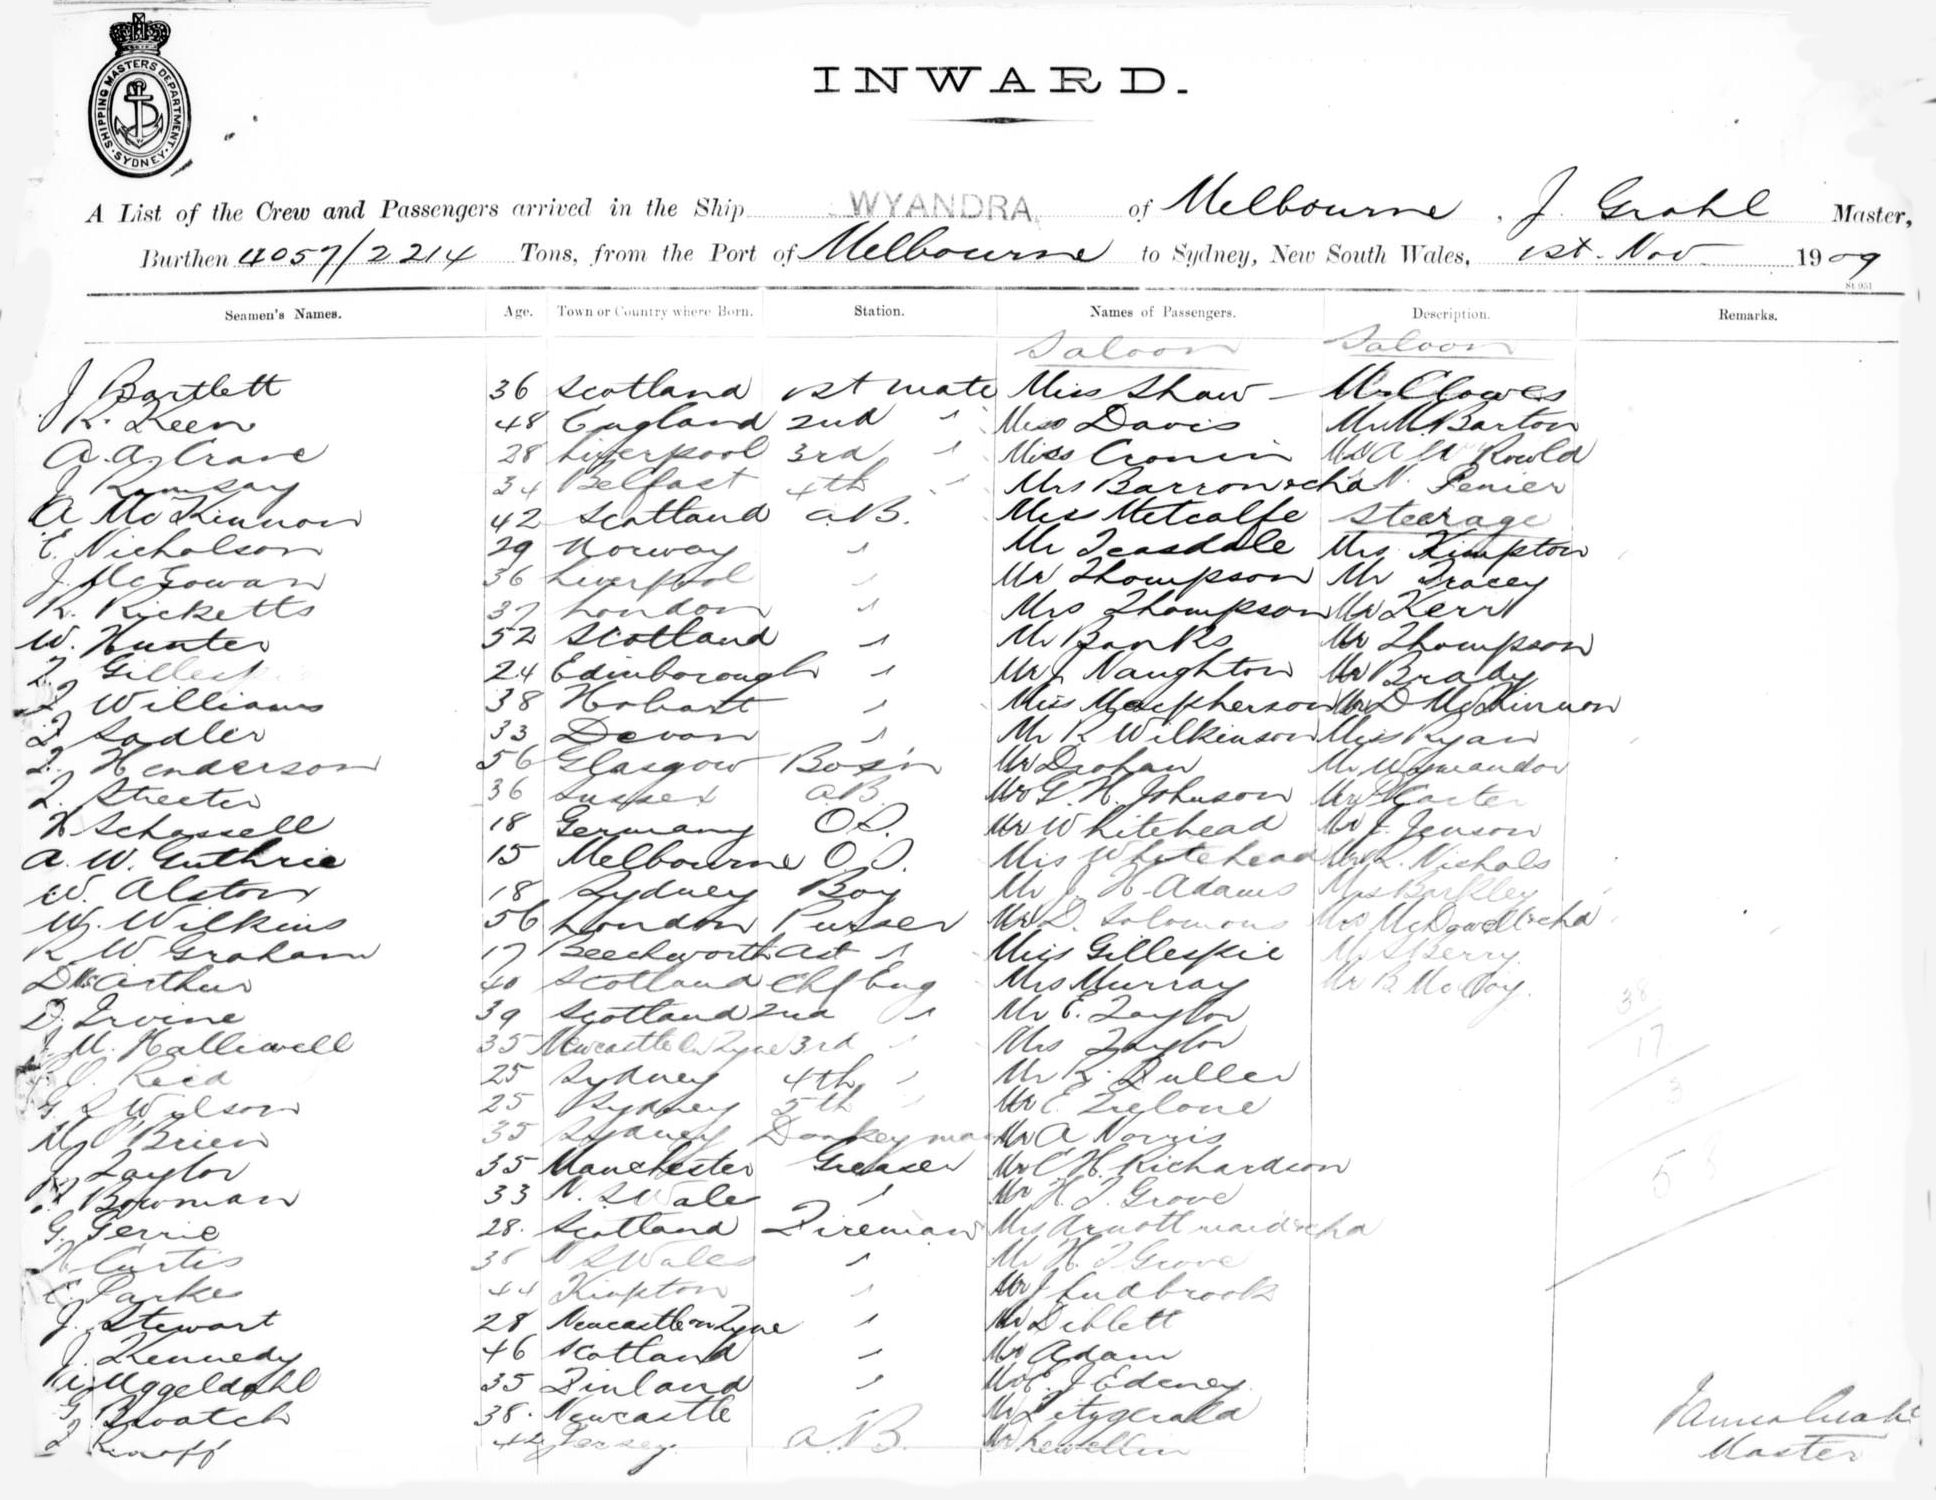 SHIPPING MASTERS DEPARTMENT
SYDNEY
INWARD.
A List of the Crew and Passengers arrived in the Ship WYANDRA of Melbourne, J. Grahl Master,
Burthen 4057/2214 Tons, from the Port of Melbourne to Sydney, New South Wales, 1st Nov 1909
Seamen's Names. Age. Town or Country where Born. Station. Names of Passengers. Description. Remarks.
Saloon Saloon
J Bartlett 36 Scotland 1st mate Miss Shaw Mr Clowes
R. Keen 48 England 2nd " Miss Davis Mr M. Barton
A. A. Crave 28 Liverpool 3rd " Miss Cronin A W Rowld
J Ramsay 34 Belfast 4th " Mrs Barron & chd N. Penier
A McKinnon 42 Scotland A.B. Miss Metcalfe Steerage
E. Nicholson 29 Norway " Mr Teasdale Mrs Kimpton
J. McGowan 36 Liverpool " Mr Thompson Mr Tracey
R. Ricketts 37 London " Mrs Thompson Mr Kerr
W. Hunter 52 Scotland " Mr Banks Mr Thompson
T. 24 Edinborough " Mr J Naughton Mr Brady
T Williams 38 Hobart " Miss Macpherson Mr D McKinnon
T Sadler 33 Devon " Mr R Wilkinson Miss Ryan
T. Henderson 56 Glasgow Bos'n Mr Drohan Mr
T. Streeter 36 Sussex A.B. Mr G. H. Johnson Mr Carter
H Schassell 18 Germany O.S. Mr Whitehead Mr J. Jenson
A. W. Guthrie 15 Melbourne O.S. Mis Whitehead Mr R. Nichols
W. Alston 18 Sydney Boy Mr J. H. Adams Mrs Barkley
W. Wilkins 56 London Purser Mr D. Solomons Mrs McDowell & chd
R W Graham 17 Beechworth Ast " Miss Gillespie Berry
D McArthur 40 Scotland Chf Eng Mrs Murray Mr B. McCoy.
D. Irvine 39 Scotland 2nd " Mr E. Taylor 38
J. M. Halliwell 35 Newcastle on Tyne 3rd " Mrs Taylor 17
J. Reid 25 Sydney 4th " Mr R. Fuller
G S Wilson 25 Sydney 5th " Mr E. 3
M O'Brien 35 Sydney Donkeyman Mr A Norris
J. Taylor 35 Manchester Greaser Mr C. H. Richardson
Bowman 33 N. S Wales " Mr H. T. Grove
G. Gerrie 28. Scotland Fireman Mrs Arnott maid & chd
H Curtis 38 N S Wales " Mr H. T Grove
E. Parkes 44 Kimpton " Mr J Ludbrook
J. Stewart 28 Newcastle on Tyne " Mr Diblett
J. Kennedy 46 Scotland " Mr Adam
Uggeldahl 35 Finland " Mr E. J Edeney
G. Bwatch 38. Newcastle " Mr Fitzgerald
42 Jersey A.B. Mr Lewellin
James Grahl
Master